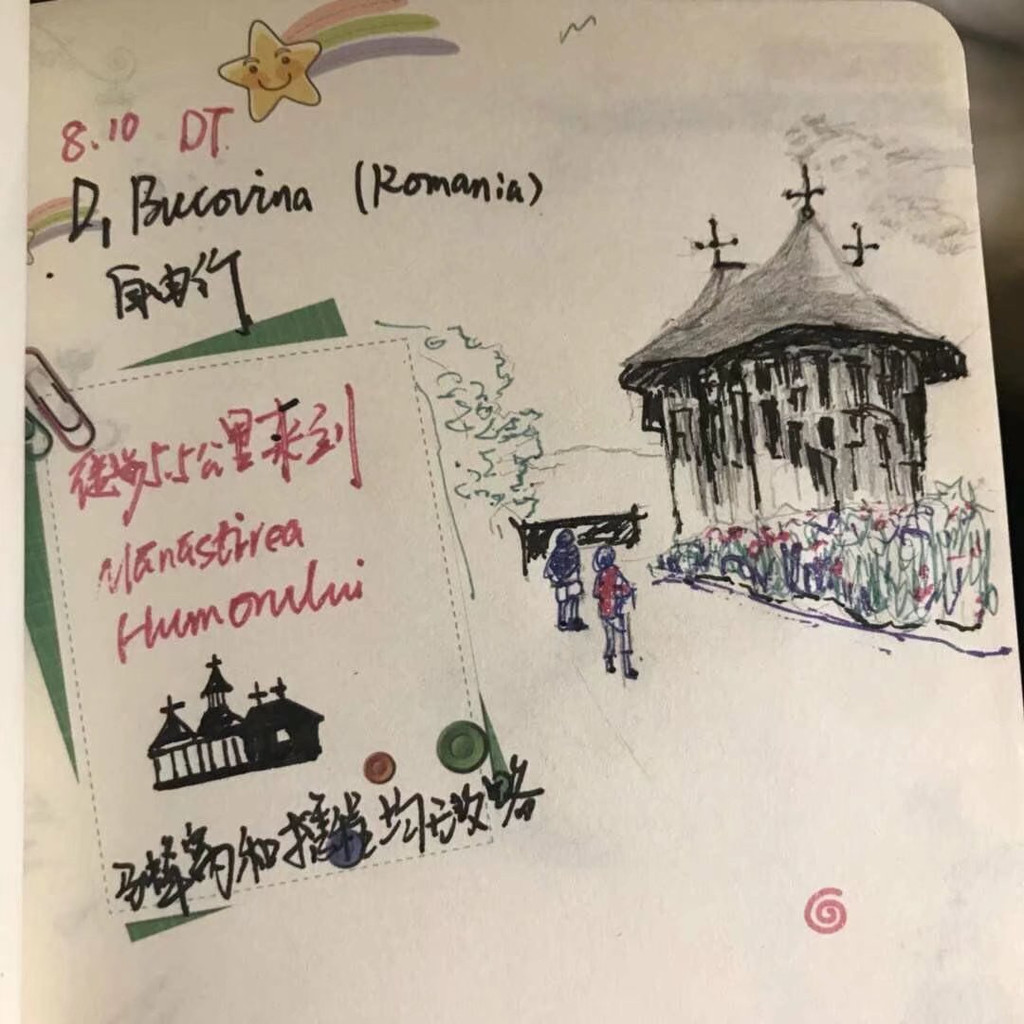 8.10 DT.
D1 Bucovina (Romania)
自由行
徒步5.5公里来到
Manastirea
Humorului
马蜂窝和携程均无攻略